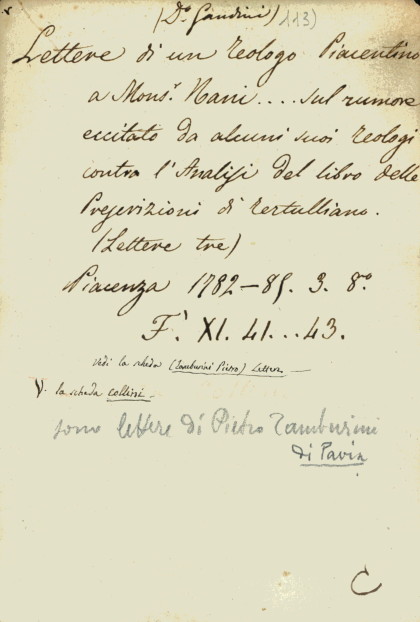 (D.º Gaudini) 113)
Lettere di un Teologo Piacentino
a Mons.r Nani .... sul rumore
eccitato da alcuni suoi Teologi
contra l'Analisi del libro delle
Prescrizioni di Tertulliano.
(Lettere tre)
Piacenza 1782-85. 3. 8º
F.' XI. 41...43.
Vedi la scheda (Tamburini Pietro) Lettera
V. la scheda Collini.
sono lettere di Pietro Tamburini
di Pavia
C